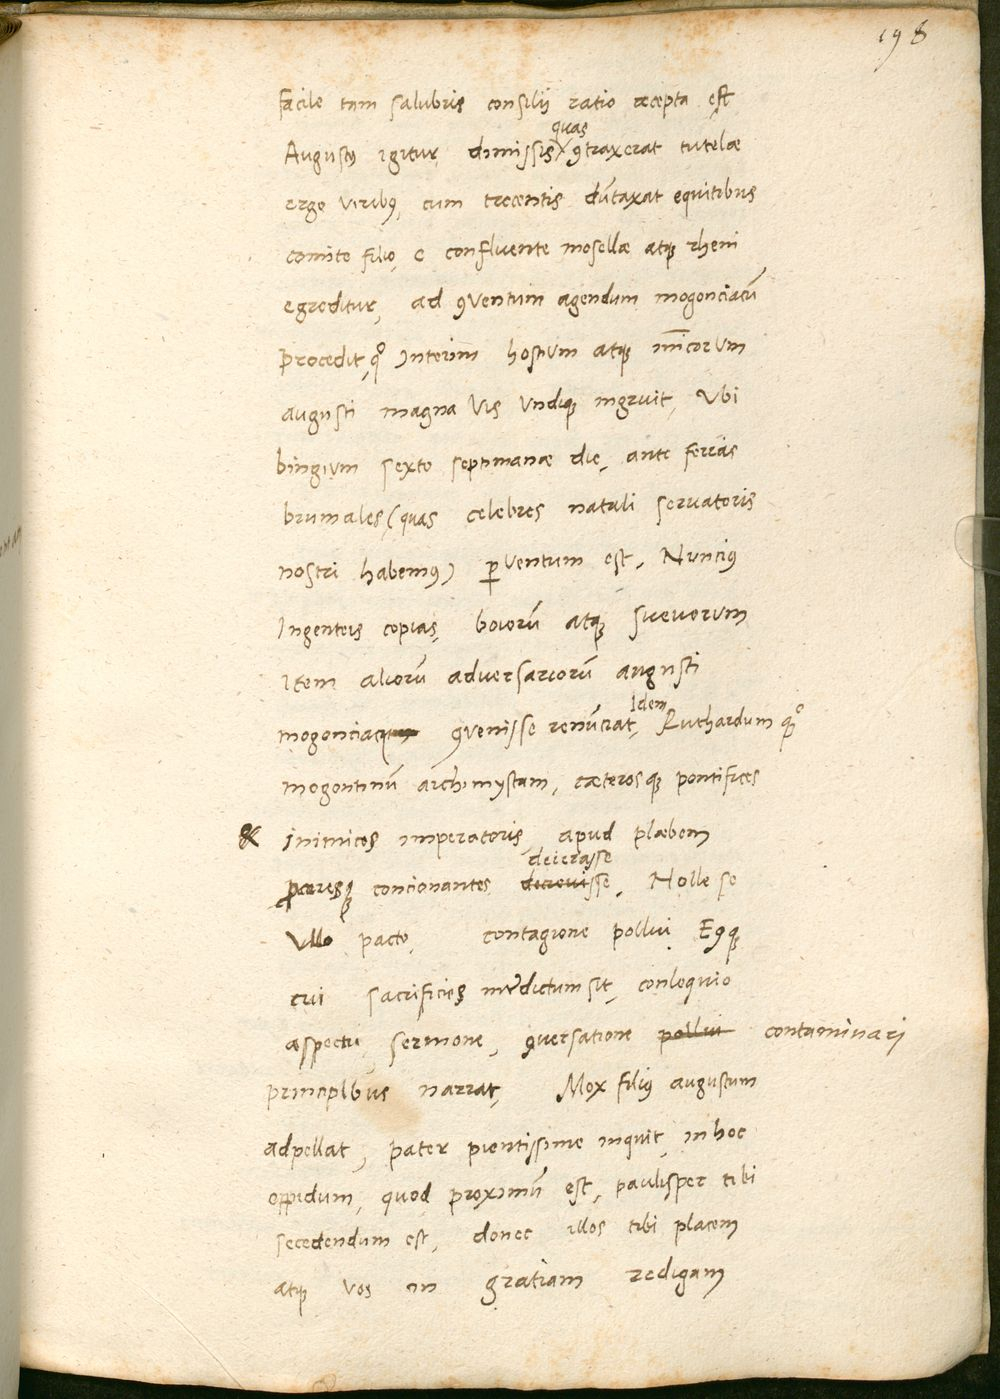 198
facile tam salubris consilij ratio recepta est
quas
Augustꝰ igitur, dimissis ꝯtraxerat tutelæ
ergo viribꝰ, cum trecentis dūtaxat equitibus
comite filio, e confluente mosellæ atqꝫ rheni
egreditur, ad ꝯventum agendum mogonciacū
procedit, qͦ interim hostium atqꝫ inīcorum
augusti magna vis undiqꝫ ingruit, Ubi
bingium sexto septimanæ die, ante ferias
brumales (quas celebres natali servatoris
nostri habemꝰ) ꝑventum est, Nunciꝰ
Ingenteis copias, boiorū atqꝫ suevorum
item aliorū adversariorū augusti
Idem
mogonciacum ꝯvenisse renūciat, Ruthardum qꝫͦ
mogontinū archimystam, cæterosqꝫ pontifices
& inimicos imperatoris, apud plæbem
deierasse
proceresqꝫ concionantes decrevisse, Nolle se
Ullo pacto, contagione pollui Eꝰqꝫ
cui sacrificiis interdictum sit, conloquio
aspectu, sermone, ꝯversatione pollui contaminari
principibus narrat, Mox filiꝰ augustum
adpellat, pater pientissime inquit, in hoc
oppidum, quod proximū est, paulisper tibi
secedendum est, donec illos tibi placem
atqꝫ vos in gratiam redigam